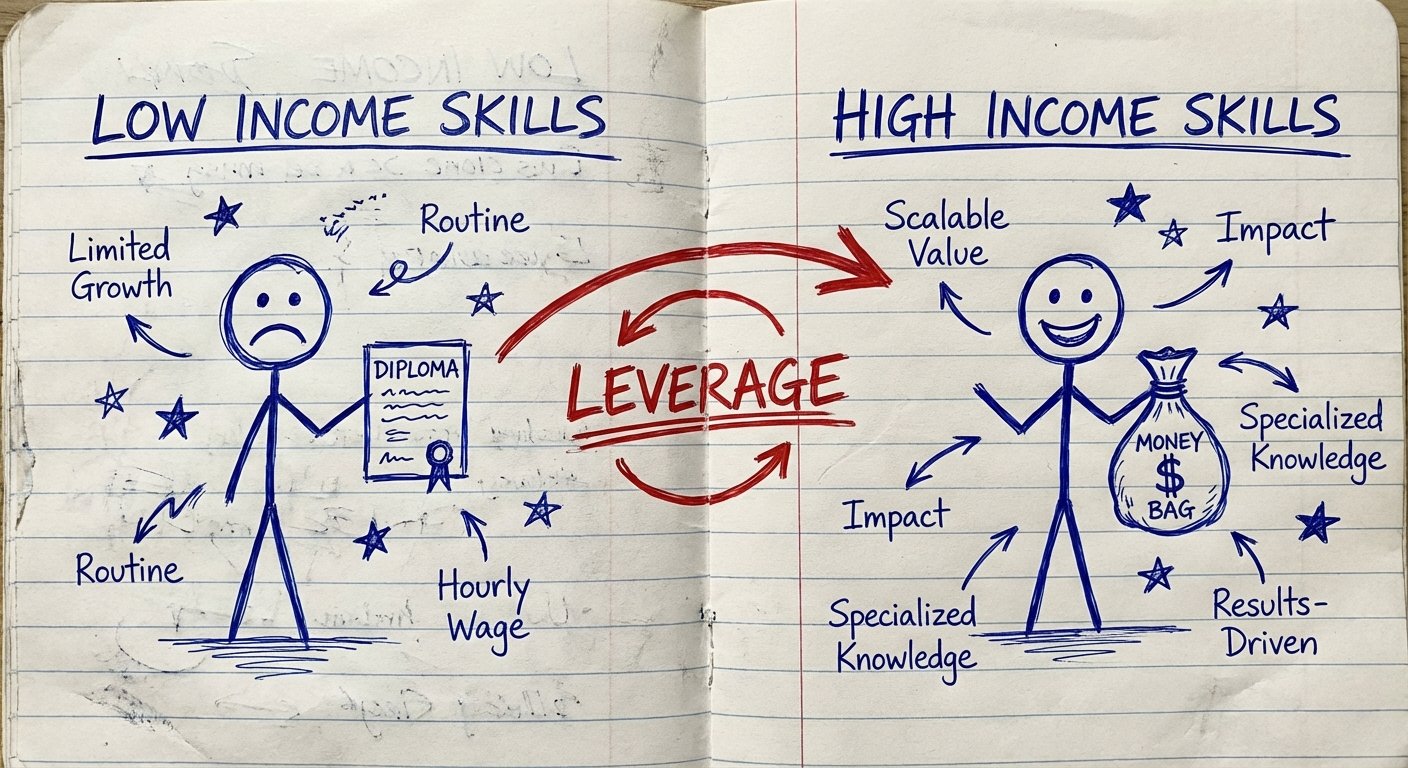 LOW INCOME SKILLS
Limited
Growth
Routine
DIPLOMA
Routine
Hourly
Wage
LEVERAGE
HIGH INCOME SKILLS
Scalable
Value
Impact
MONEY
$
BAG
Specialized
Knowledge
Impact
Specialized
Knowledge
Results-
Driven